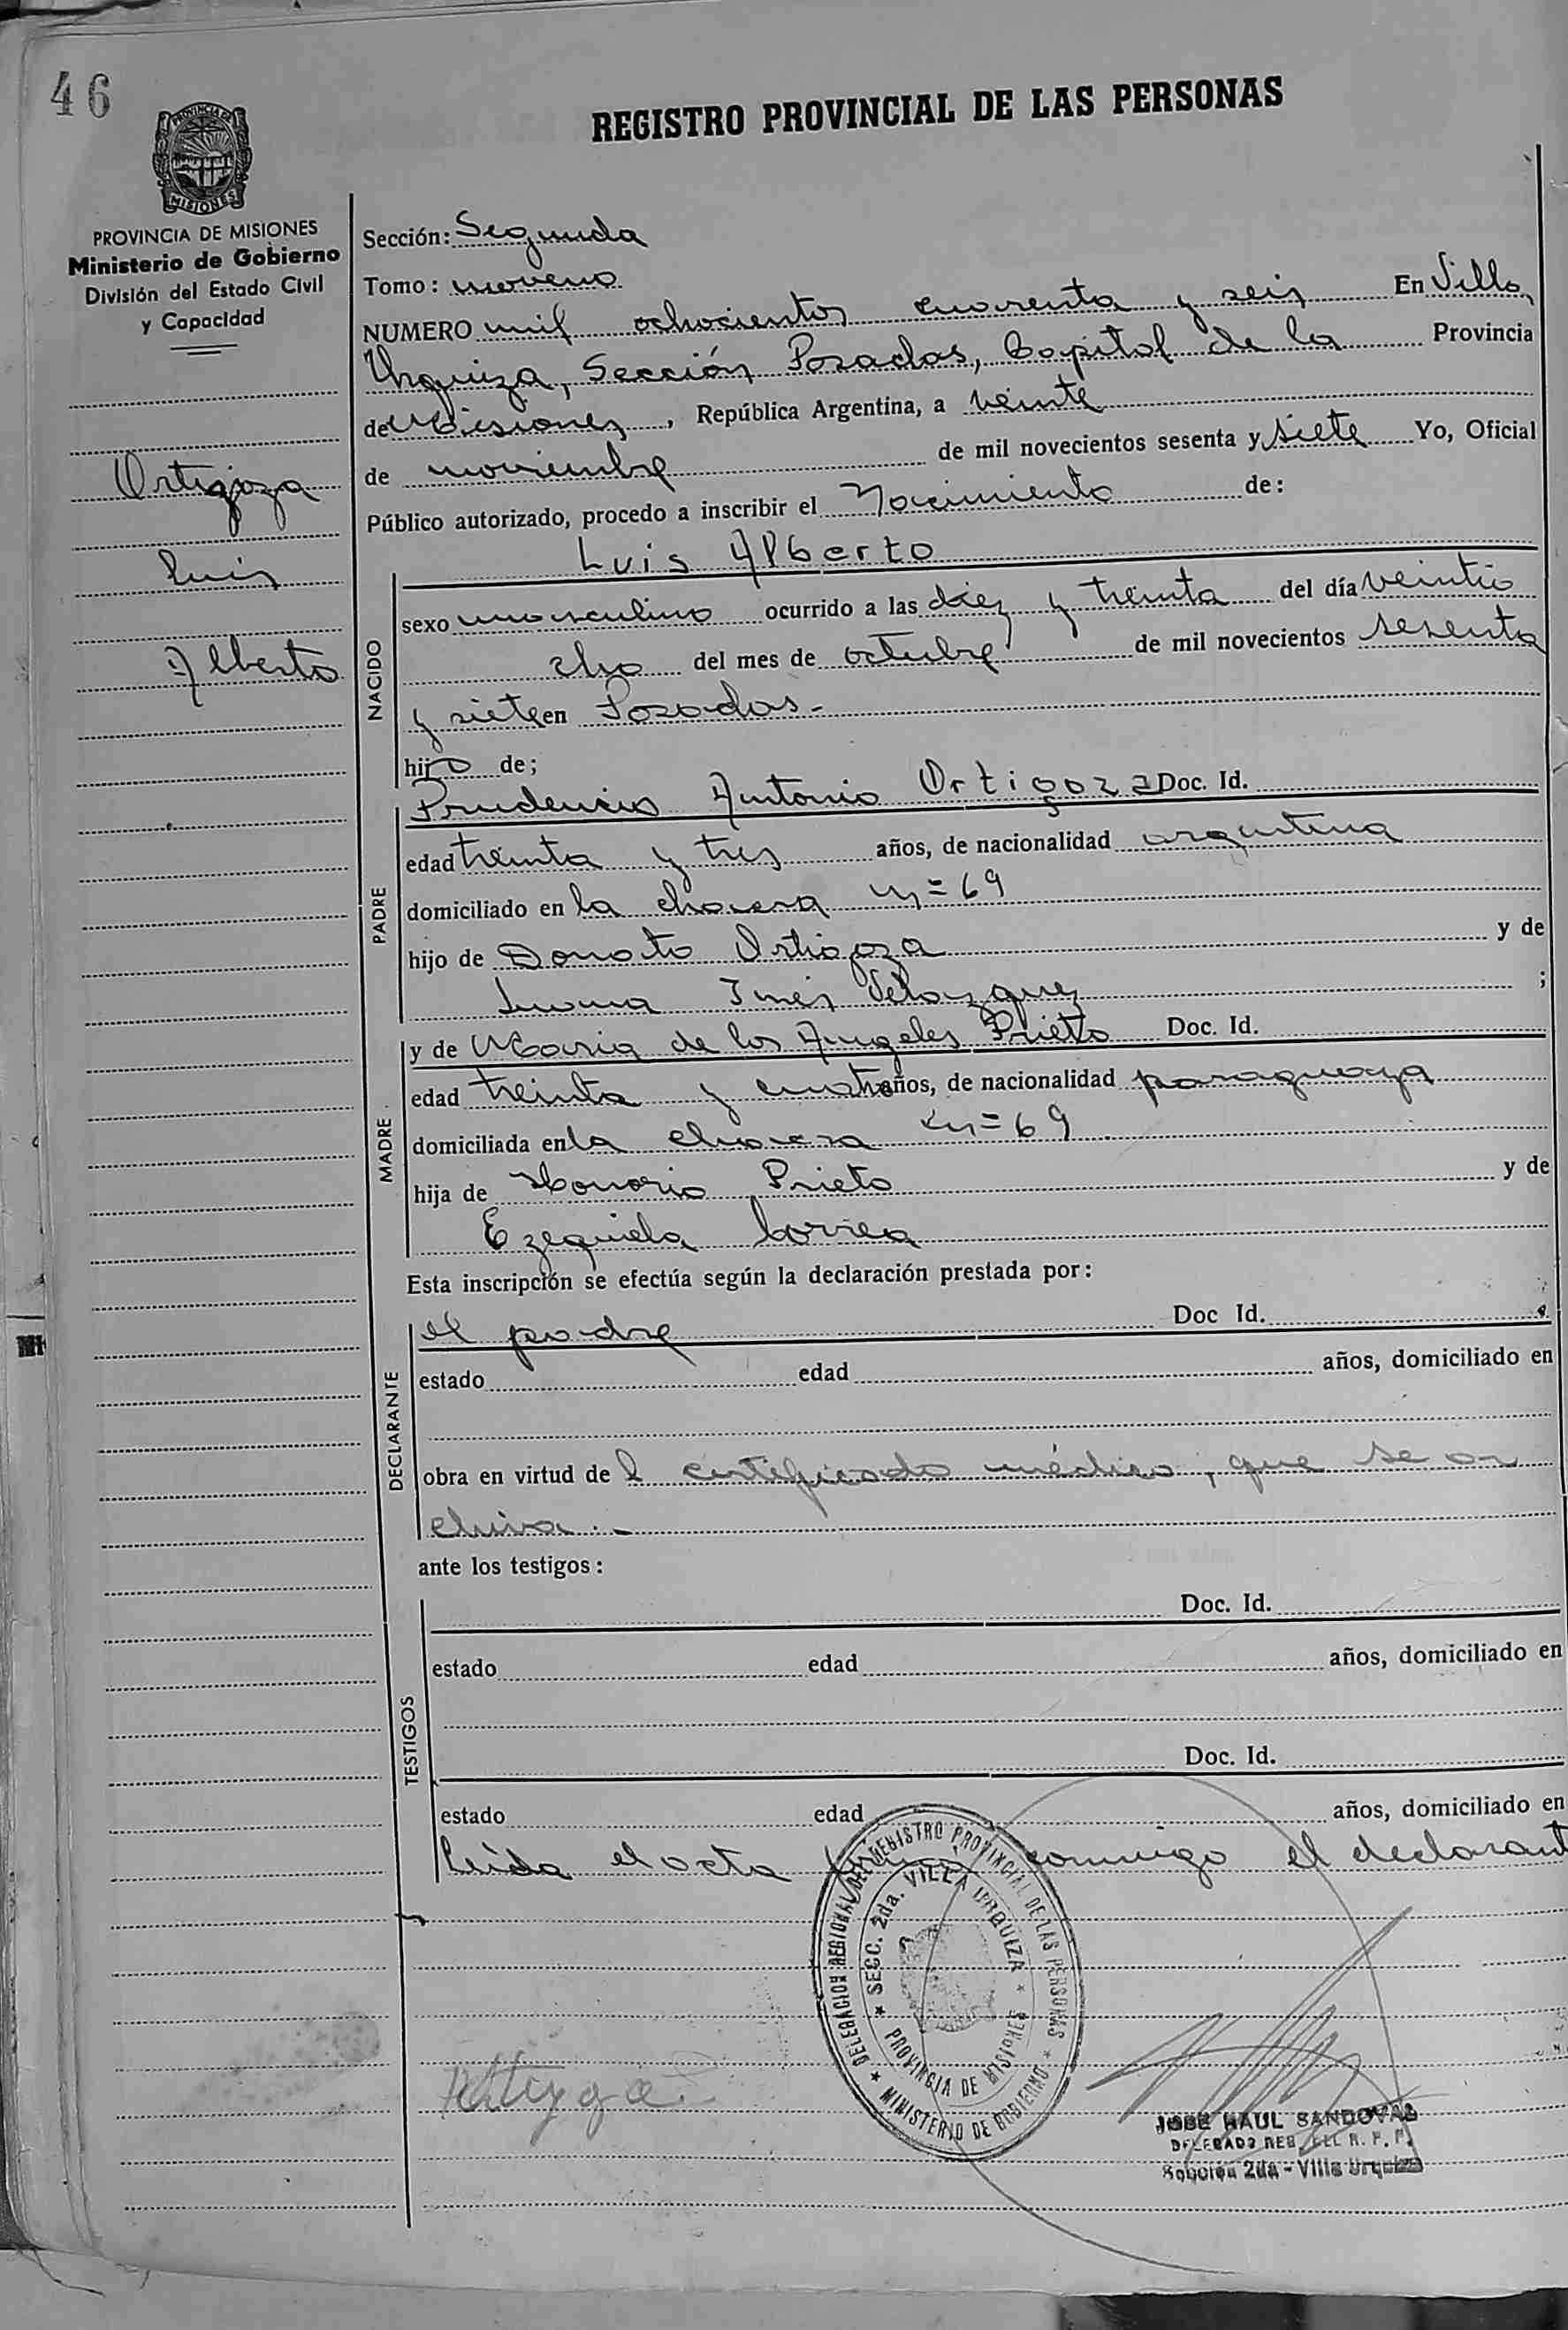 46
REGISTRO PROVINCIAL DE LAS PERSONAS
PROVINCIA DE
MISIONES
PROVINCIA DE MISIONES
Ministerio de Gobierno
División del Estado Civil
y Capacidad
Ortigoza
Luis
Alberto
Sección: Segunda
Tomo: noveno
NUMERO mil ochocientos cuarenta y seis En Villa
Urquiza, Sección Posadas, Capital de la Provincia
de Misiones, República Argentina, a veinte
de noviembre de mil novecientos sesenta y siete Yo, Oficial
Público autorizado, procedo a inscribir el Nacimiento de:
Luis Alberto
NACIDO
sexo masculino ocurrido a las diez y treinta del día veintio
cho del mes de octubre de mil novecientos sesenta
y siete en Posadas.-
hijo de;
PADRE
Prudencio Antonio Ortigoza Doc. Id.
edad treinta y tres años, de nacionalidad argentina
domiciliado en la chacra n= 69
hijo de Donato Ortigoza y de
Inés Velazquez ;
MADRE
y de Maria de los Angeles Prieto Doc. Id.
edad treinta y cuatro años, de nacionalidad paraguaya
domiciliada en la chacra n= 69
hija de Honorio Prieto y de
Ezequiela Correa
Esta inscripción se efectúa según la declaración prestada por:
DECLARANTE
el padre Doc Id.
estado edad años, domiciliado en
obra en virtud del certificado médico, que se ar
chiva.-
ante los testigos:
TESTIGOS
Doc. Id.
estado edad años, domiciliado en
Doc. Id.
estado edad años, domiciliado en
Leída el acta conmigo el declarant
DELEGACION REGIONAL DEL REGISTRO PROVINCIAL DE LAS PERSONAS * MINISTERIO DE GOBIERNO *
* SECC. 2da. VILLA URQUIZA * PROVINCIA DE MISIONES
JOSE RAUL SANDOVAL
DELEGADO REG. DEL R. P. P.
Sección 2da - Villa Urquiza